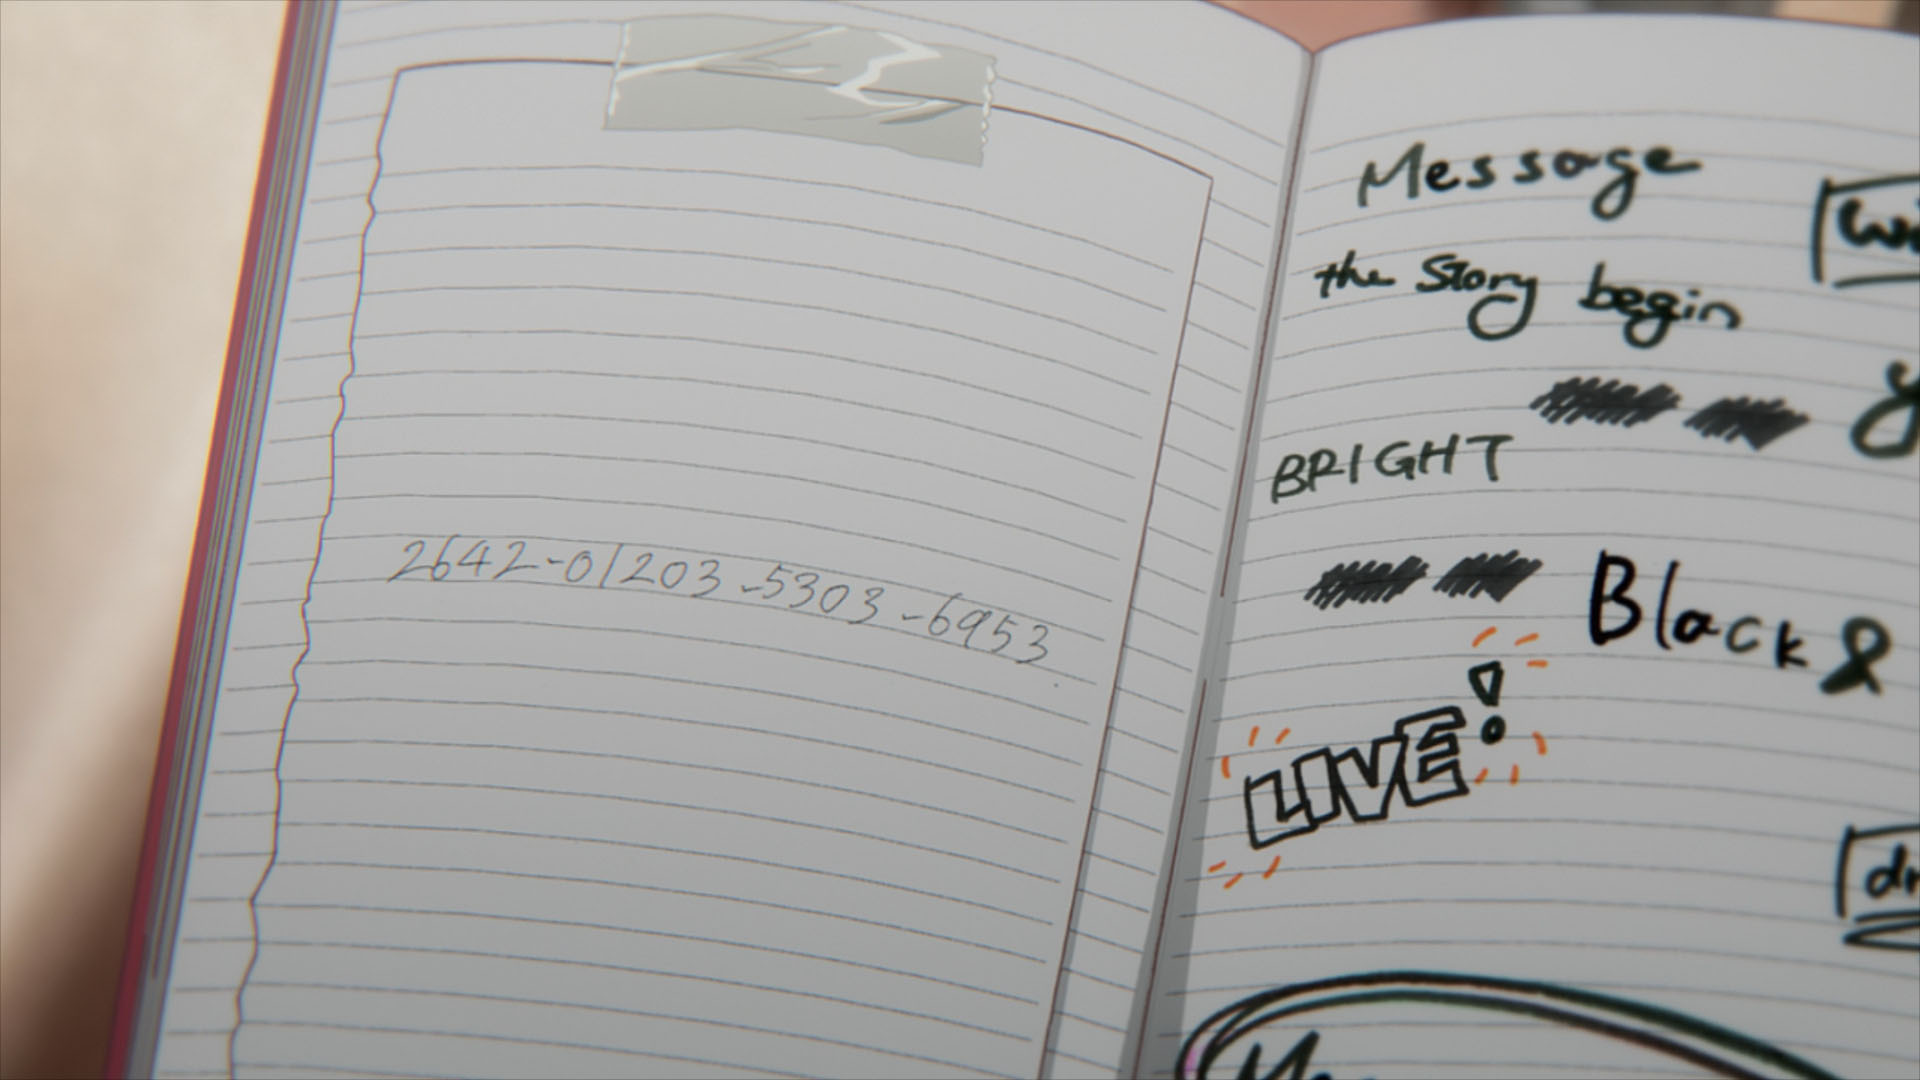 2642-01203-5303-6953
Message
the Story begin
BRIGHT
Black &
LIVE!